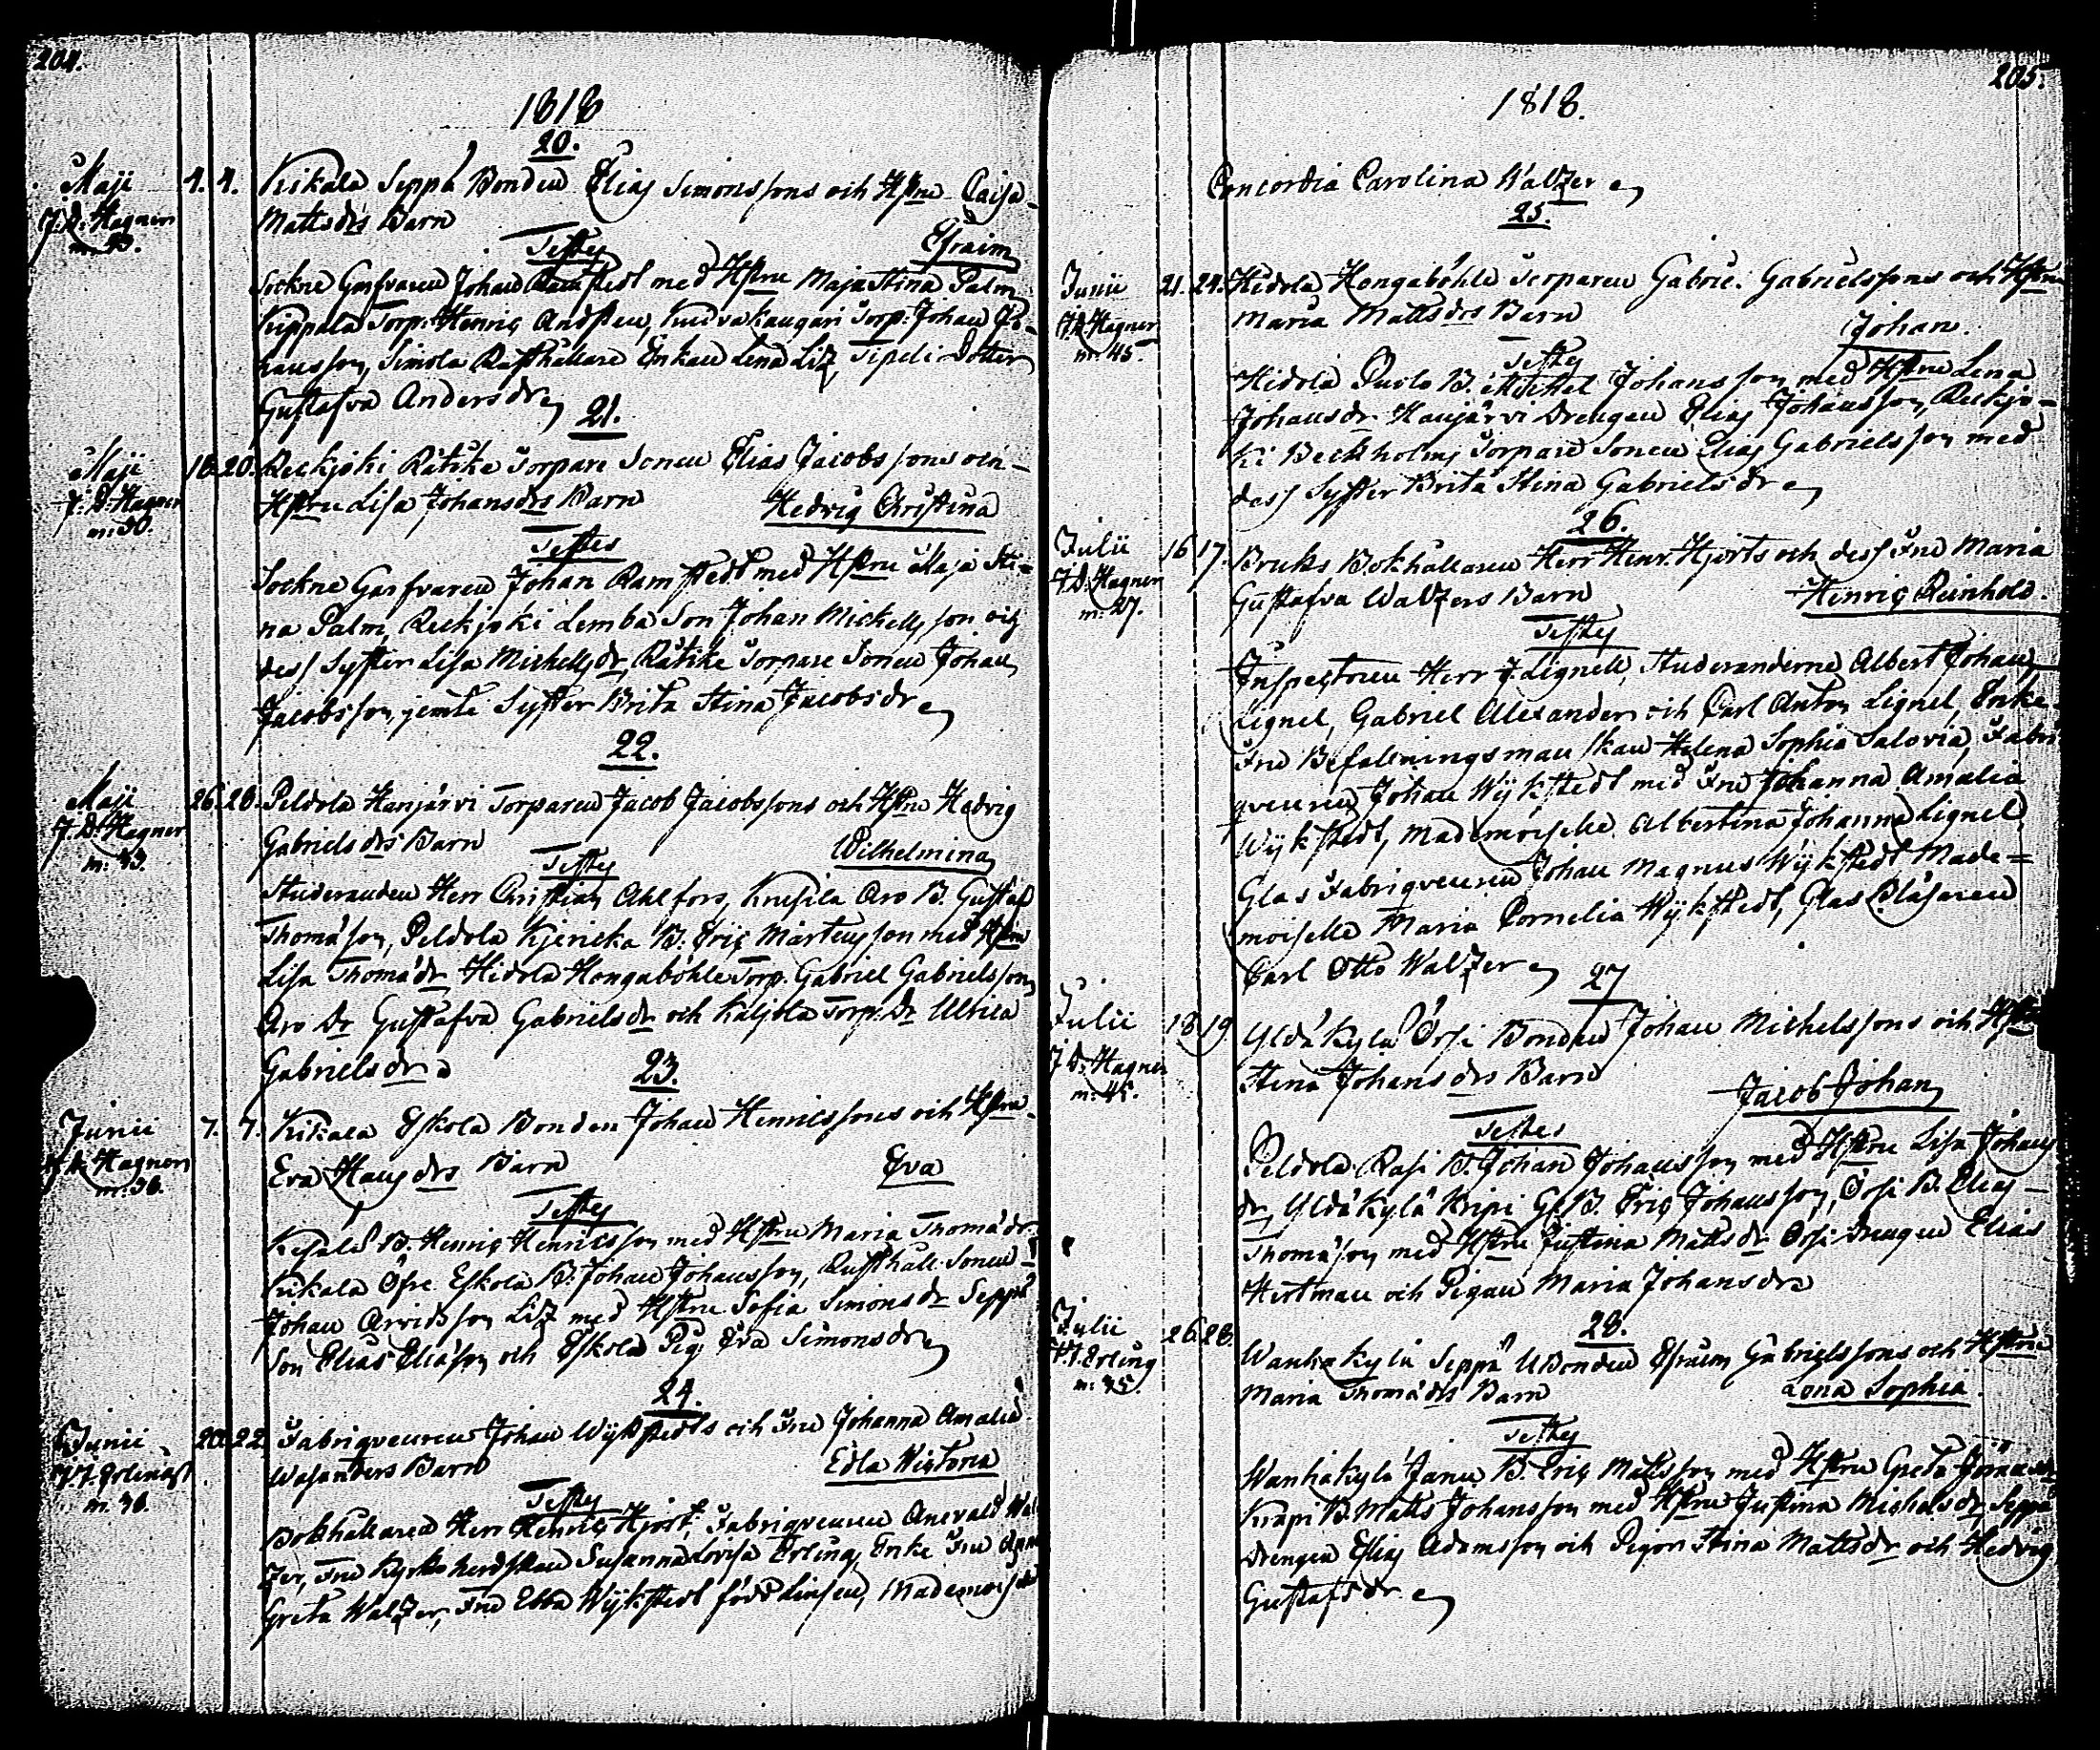 204.
1818
20.
Maji 4. 4. Kikala Seppä Bonden Elias Simonssons och Hstru Caisa
J: D: Hagner Mattsdrs Barn Efraim
Testes
Sockne Garfvaren Johan Ramstedt med Hstru Maja Stina Palm,
Kippala Torp. Henric Andssen, Kaugari Torp: Johan Jo-
hansson, Simola Rusthållare Enkan Lena Litz, Sipeli Dotter
Gustafva Andersdr
21.
Maji 18. 20. Reckjoki Rätike Torpare Sonen Elias Jacobssons och
J: D: Hagner Hstru Lisa Johansdrs Barn Hedvig Christina
m: 30.
Testes
Sockne Garfvaren Johan Ramstedt med Hstru Maja Sti-
na Palm, Reckjoki Lemba Son Johan Mickelsson och
dess Syster Lisa Michelsdr, Rätike Torpare Sonen Johan
Jacobsson, jemte Syster Brita Stina Jacobsdr
22.
Maji 26. 28. Peldola Hanjärvi Torparen Jacob Jacobssons och Hstru Hedvig
J. D: Hagner Gabrielsdrs Barn Wilhelmina
m: 33.
Testes
Studeranden Herr Christian Ahlfors, Krusila Aro B. Gustaf
Thomasson, Peldola Kjericka B: Eric Mårtensson med Hstru
Lisa Thomædr, Hidola Hongaböhle Torp. Gabriel Gabrielsson,
Aro Dr Gustafva Gabrielsdr och Kaljola Torp: Dr Ulrica
Gabrielsdr
23.
Junii 7. 7. Kikala Eskola Bonden Johan Henricssons och Hstru
J. D: Hagner Eva Hansdrs Barn Eva
m: 36.
Testes
B. Henric Henricsson med Hstru Maria Thomædr
Kikala Öfre Eskola B: Johan Johansson, Rusthåll. Sonen
Johan Arvidsson Litz med Hstru Sofia Simonsdr Seppä
Son Elias Eliæson och Eskola Pig. Eva Simonsdr
24.
Junii 20. 22. Fabriqveuren Johan Wykstedts och Fru Johanna Amalia
J. J. Erling Wasanders Barn Edla Victoria
m. 36.
Testes
Bokhållaren Herr Henric Hjort, Fabriqveuren Anevald Wal-
tzer, Fru Kyrkoherdskan Susanna Lovisa Erling, Enke Fru Anna
Greta Waltzer, Fru Ebba Wykstedt född Linsen, Mademoiselle
205.
1818.
Concordia Carolina Waltzer
25.
Junii 21. 24. Hidola Hongaböhle Torparen Gabriel Gabrielssons och Hstru
J. D: Hagner Maria Mattsdrs Barn Johan.
m: 45.
Testes
Hidola Pavlo B. Michel Johansson med Hstru Lena
Johansdr. Hanjärvi Drengen Elias Johansson, Reckjo-
ki Beckholms Torpare Sonen Elias Gabrielsson med
dess Syster Brita Stina Gabrielsdr
26.
Julii 16 17. Bruks Bokhållaren Herr Henr. Hjorts och dess Fru Maria
J. D: Hagner Gustafva Waltzers Barn Henric Reinhold.
m: 27.
Testes
Inspectoren Herr J. Lignell, Studeranderne Albert Johan
Lignel, Gabriel Alexander och Carl Anton Lignel, Enke
Fru Befallningsmanskan Helena Sophia Salovia, Fabri-
qveuren Johan Wykstedt med Fru Johanna Amalia
Wykstedt, Mademoiselle Albertina Johanna Lignel
Glas Fabriqveuren Johan Magnus Wykstedt Made-
moiselle Maria Cornelia Wykstedt, Glas Blåsaren
Carl Otto Waltzer
27
Julii 18 19. Yldäkylä Orsi Bonden Johan Michelssons och Hstru
J D: Hagner Stina Johansdrs Barn Jacob Johan
m: 45.
Testes
Peldola Rasi B. Johan Johansson med Hstru Lisa Johans
dr, Yldäkylä Kripi B. Eric Johansson, Orsi B. Elias
Thomæson med Hstru Justina Mattsdr Orsi Drengen Elias
Hertman och Pigan Maria Johansdr
28.
Julii 26. 28. Wanhakylä Seppä Bonden Efraim Gabrielssons och Hstru
J. J. Erling Maria Thomædrs Barn Lena Sophia.
m: 35.
Testes
Wanhakylä B. Eric Mattsson med Hstru Greta
Knapi B. Matts Johansson med Hstru Justina Michelsdr, Seppä
Drengen Elias Adamsson och Pigor Stina Mattsdr och Hedvig
Gustafsdr